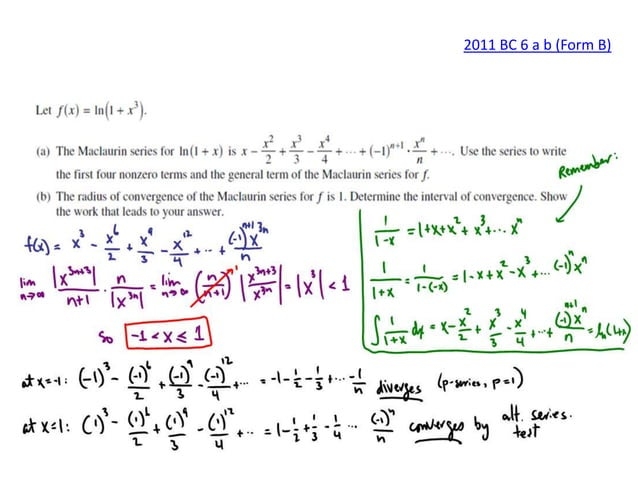 2011 BC 6 a b (Form B)
Let f(x) = ln(1 + x³).
(a) The Maclaurin series for ln(1 + x) is x − x²/2 + x³/3 − x⁴/4 + ⋯ + (−1)ⁿ⁺¹ · xⁿ/n + ⋯. Use the series to write
the first four nonzero terms and the general term of the Maclaurin series for f.
Remember:
(b) The radius of convergence of the Maclaurin series for f is 1. Determine the interval of convergence. Show
the work that leads to your answer.
f(x) = x³ − x⁶/2 + x⁹/3 − x¹²/4 + ⋯ + (−1)ⁿ⁺¹x³ⁿ/n
lim n→∞ |x³ⁿ⁺³|/n+1 · n/|x³ⁿ| = lim n→∞ (n/n+1)¹ |x³ⁿ⁺³/x³ⁿ| = |x³| < 1
so -1 < x ≤ 1
1/1-x = 1+x+x²+x³+... xⁿ
1/1+x = 1/1-(-x) = 1-x+x²-x³+...(-1)ⁿxⁿ
∫ 1/1+x dx = x - x²/2 + x³/3 - x⁴/4 + ⋯ + (-1)ⁿ⁺¹xⁿ/n = ln(1+x)
at x=-1: (-1)³ - (-1)⁶/2 + (-1)⁹/3 - (-1)¹²/4 + ⋯ = -1-1/2-1/3+⋯-1/n diverges (p-series, p=1)
at x=1: (1)³ - (1)⁶/2 + (1)⁹/3 - (1)¹²/4 + ⋯ = 1-1/2+1/3-1/4 ⋯ (-1)ⁿ/n converges by alt. series test